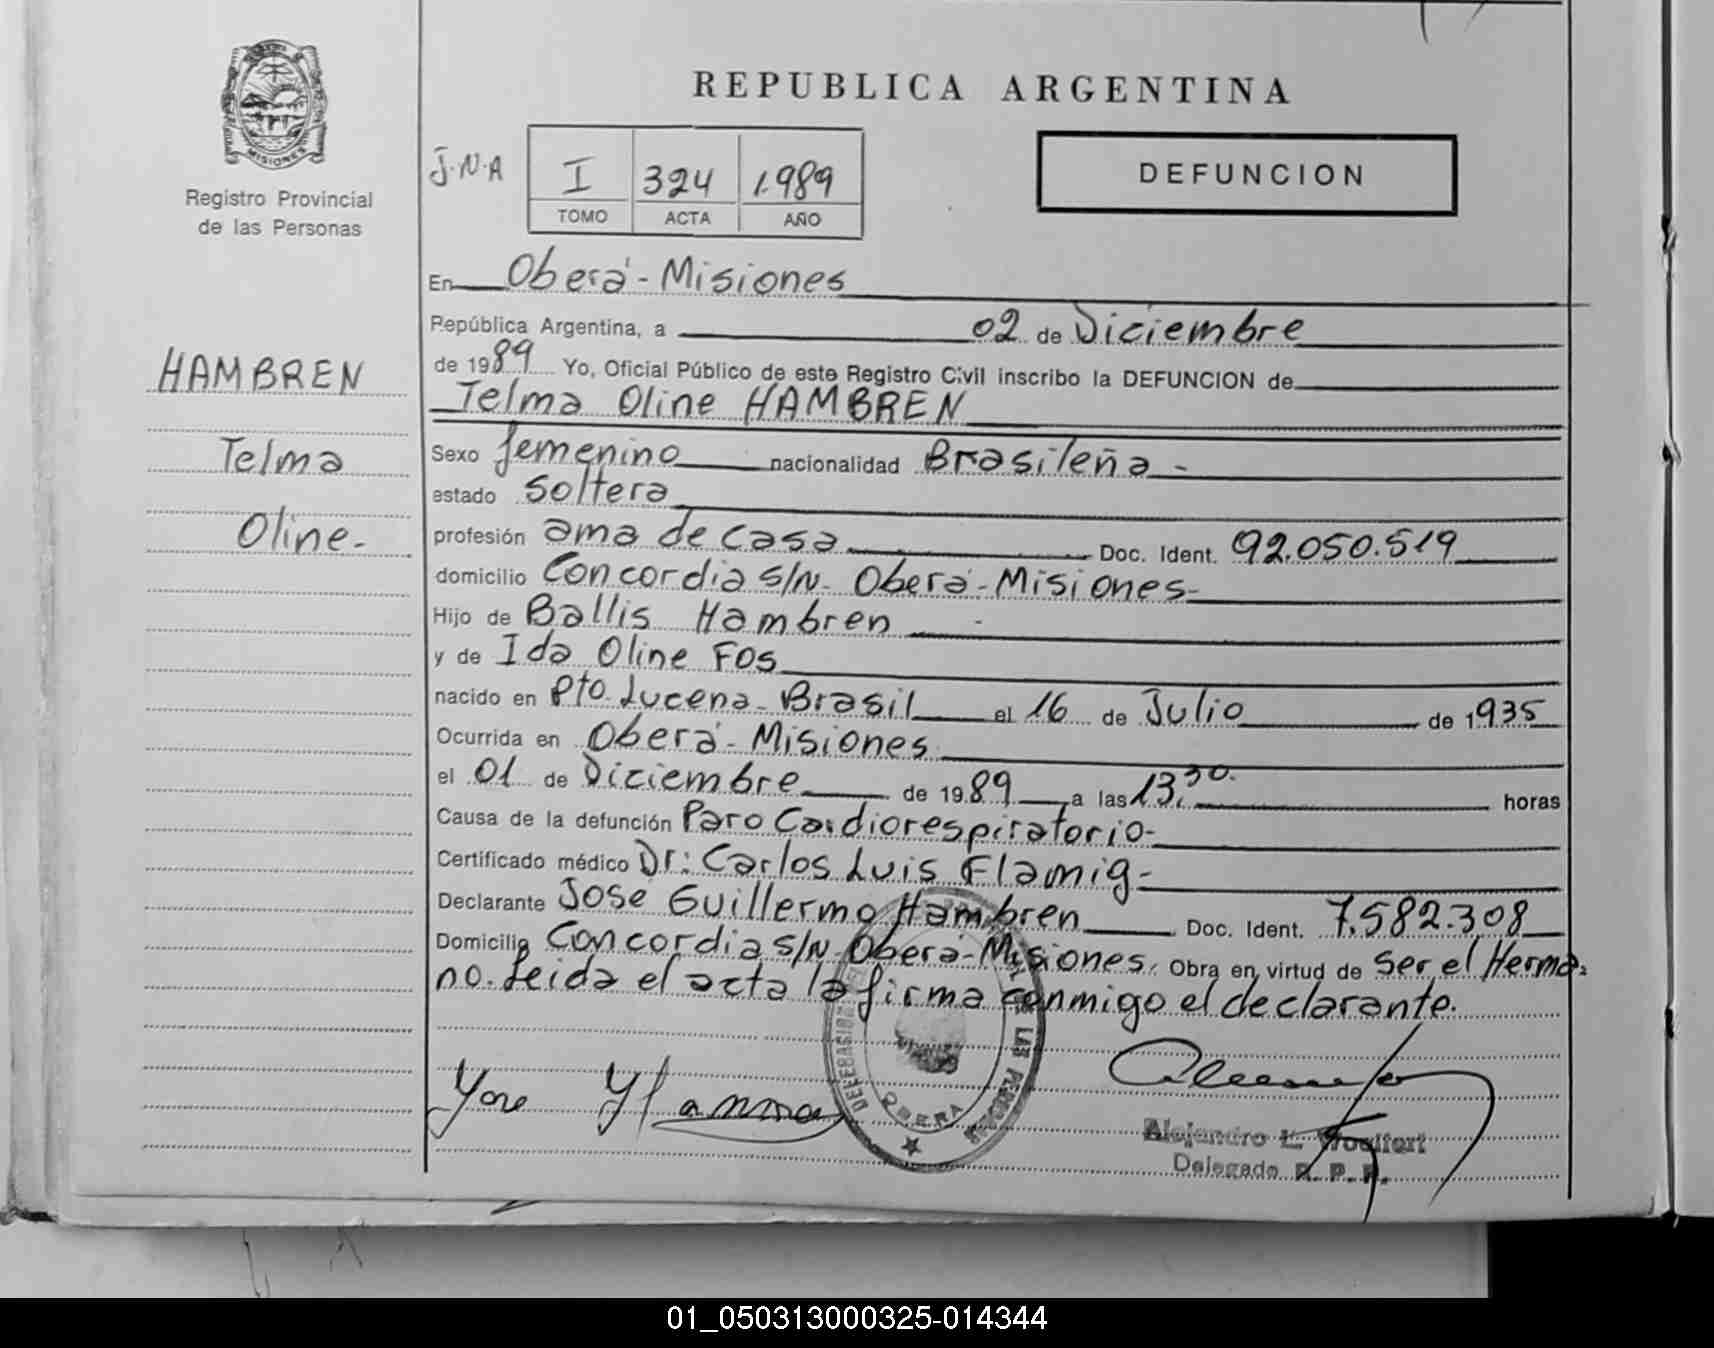 REPUBLICA ARGENTINA
MISIONES
Registro Provincial
de las Personas
J.N.A
I 324 1.989
TOMO ACTA AÑO
DEFUNCION
En Oberá - Misiones
República Argentina, a 02 de Diciembre
de 1989 Yo, Oficial Público de este Registro Civil inscribo la DEFUNCION de
Telma Oline HAMBREN
HAMBREN
Telma
Oline-
Sexo femenino nacionalidad Brasileña -
estado soltera
profesión ama de casa Doc. Ident. 92.050.519
domicilio Concordia s/N- Oberá - Misiones-
Hijo de Ballis Hambren -
y de Ida Oline Fos
nacido en Pto. Lucena - Brasil el 16 de Julio de 1935
Ocurrida en Oberá - Misiones
el 01 de Diciembre de 1989 a las 13,30. horas
Causa de la defunción Paro Cardiorespiratorio-
Certificado médico Dr: Carlos Luis Flamig-
Declarante José Guillermo Hambren Doc. Ident. 7.582.308
Domicilio Concordia s/N- Oberá - Misiones. Obra en virtud de ser el Herma-
no. Leida el acta la firma conmigo el declarante.
OBERA
Alejandro L. Woulfort
Delegado R. P. P.
01_050313000325-014344